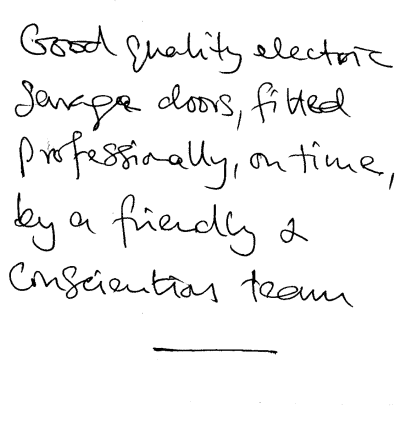 Good quality electric
garage doors, fitted
professionally, on time,
by a friendly &
conscientious team